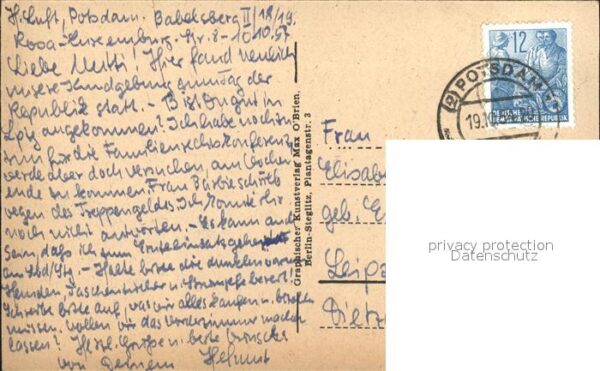 H. Luft, Potsdam-Babelsberg II / 18/19.
Rosa-Luxemburg-Str. 8 - 10 10.57
Liebe Mutti! Hier fand neulich
unsere Kundgebung zum Tag der
Republik statt. - Bist Du gut in
Lpzg angekommen? Ich habe noch
zu tun für die Familienrechtskonferenz
werde aber doch versuchen, am Wochen
ende zu kommen. Frau
wegen des Treppengeldes. Ich konnte ihr
noch nicht antworten. - Es kann auch
sein, daß ich zum Ernteeinsatz
am - Halte bitte die dunkelbraunen
Hemden, Taschentücher u. Strümpfe bereit!
Schreibe bitte auf, was wir alles
müssen. Wollen wir das Vorderzimmer machen
lassen? Herzl. Grüße u. beste Wünsche
von Deinem Helmut
Graphischer Kunstverlag Max O'Brien,
Berlin-Steglitz, Plantagenstr. 3
12
DEUTSCHE
DEMOKRATISCHE REPUBLIK
(2) POTSDAM
19.10
Frau
Elisa
geb. E
Leipz
Dietz
privacy protection
Datenschutz